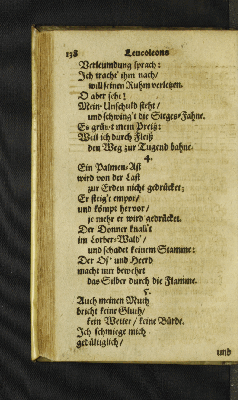 138 Leucoleons
Verleumdung sprach:
Ich tracht' ihm nach/
will seinen Ruhm verletzen.
O aber seht!
Mein Unschuld steht/
und schwing't die Sieges-Fahne.
Es grün't mein Preiß:
Will ich durch Fleiß
den Weg zur Tugend bahne.
4.
Ein Palmen-Ast
wird von der Last
zur Erden nicht gedrücket;
Er steig't empor/
und kömpt hervor/
je mehr er wird gedrücket.
Der Donner knall't
im Lorber-Wald'/
und schadet keinem Stamme:
Der Of' und Heerd
macht nur bewehrt
das Silber durch die Flamme.
5.
Auch meinen Muth
beicht keine Gluth/
kein Wetter/ keine Bürde.
Ich schmiege mich
gedültiglich/
und